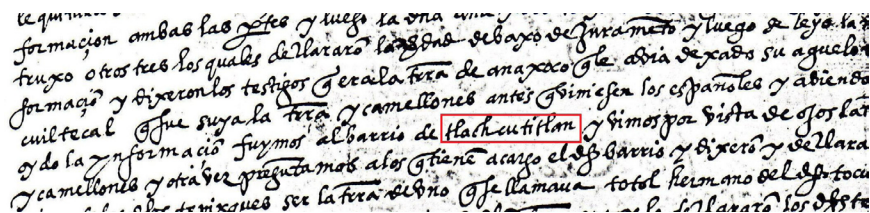 formaçion ambas las ptes y luego la una
truxo otros tres los quales declararõ la verdad debaxo de Juramẽto y luego se leyo la
formaciõ y dixeron los testigos q̃ era la trra de anaxoco q̃ le avia dexado su aguelo
cuiltecal q̃ fue suya la trra y camellones antes q̃ viniesen los españoles y abiendo
oydo la ynformaciõ fuymos al barrio de tlachcutitlan y vimos por vista de ojos la
y camellones y otra vez preguntamos a los q̃ tienẽ a cargo el dho barrio y dixerõ y declara
ser la trra de uno q̃ se llamava totol hermano del dho
declararõ los